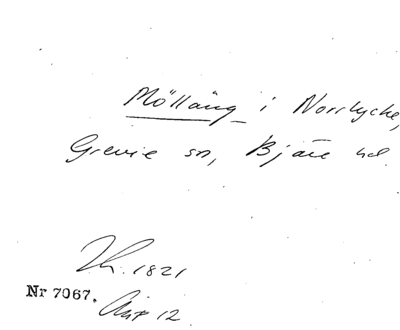 Mölläng i Norrlycke,
Grevie sn, Bjäre hd.
1821
Nr 7067.
12